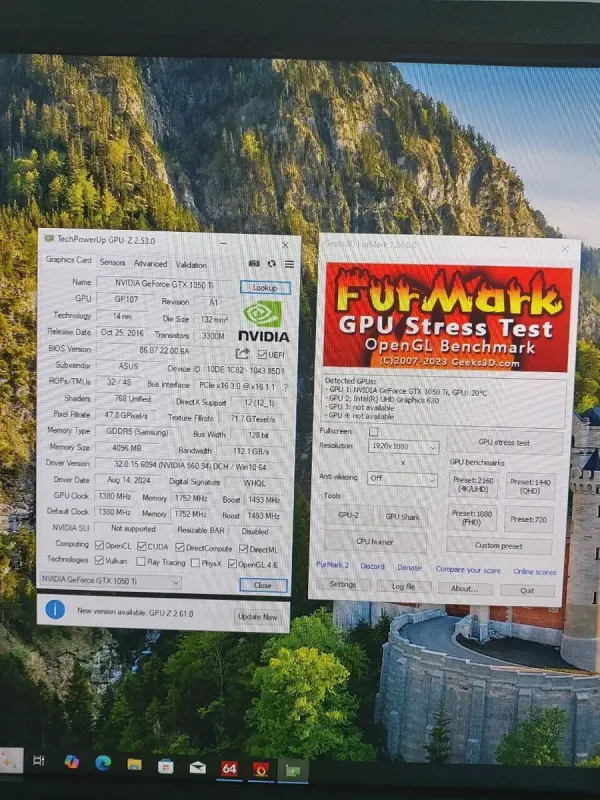 TechPowerUp GPU-Z 2.53.0
Graphics Card Sensors Advanced Validation
Name NVIDIA GeForce GTX 1050 Ti Lookup
GPU GP107 Revision A1
Technology 14 nm Die Size 132 mm²
Release Date Oct 25, 2016 Transistors 3300M
NVIDIA
BIOS Version 86.07.22.00.6A UEFI
Subvendor ASUS Device ID 10DE 1C82 - 1043 85D1
ROPs/TMUs 32 / 48 Bus Interface PCIe x16 3.0 @ x16 1.1 ?
Shaders 768 Unified DirectX Support 12 (12_1)
Pixel Fillrate 47.8 GPixel/s Texture Fillrate 71.7 GTexel/s
Memory Type GDDR5 (Samsung) Bus Width 128 bit
Memory Size 4096 MB Bandwidth 112.1 GB/s
Driver Version 32.0.15.6094 (NVIDIA 560.94) DCH / Win10 64
Driver Date Aug 14, 2024 Digital Signature WHQL
GPU Clock 1380 MHz Memory 1752 MHz Boost 1493 MHz
Default Clock 1380 MHz Memory 1752 MHz Boost 1493 MHz
NVIDIA SLI Not supported Resizable BAR Disabled
Computing OpenCL CUDA DirectCompute DirectML
Technologies Vulkan Ray Tracing PhysX OpenGL 4.6
NVIDIA GeForce GTX 1050 Ti Close
New version available: GPU-Z 2.61.0 Update Now
FurMark
GPU Stress Test
OpenGL Benchmark
(C)2007-2023 Geeks3D.com
Detected GPUs:
- GPU 1: NVIDIA GeForce GTX 1050 Ti, GPU: 20°C
- GPU 2: Intel(R) UHD Graphics 630
- GPU 3: not available
- GPU 4: not available
Fullscreen
Resolution 1920x1080 GPU stress test
x GPU benchmarks
Anti-aliasing Off Preset:2160 (4K/UHD) Preset:1440 (QHD)
Tools
GPU-Z GPU Shark Preset:1080 (FHD) Preset:720
CPU burner Custom preset
FurMark 2 Discord Donate Compare your score Online scores
Settings Log file About... Quit
64